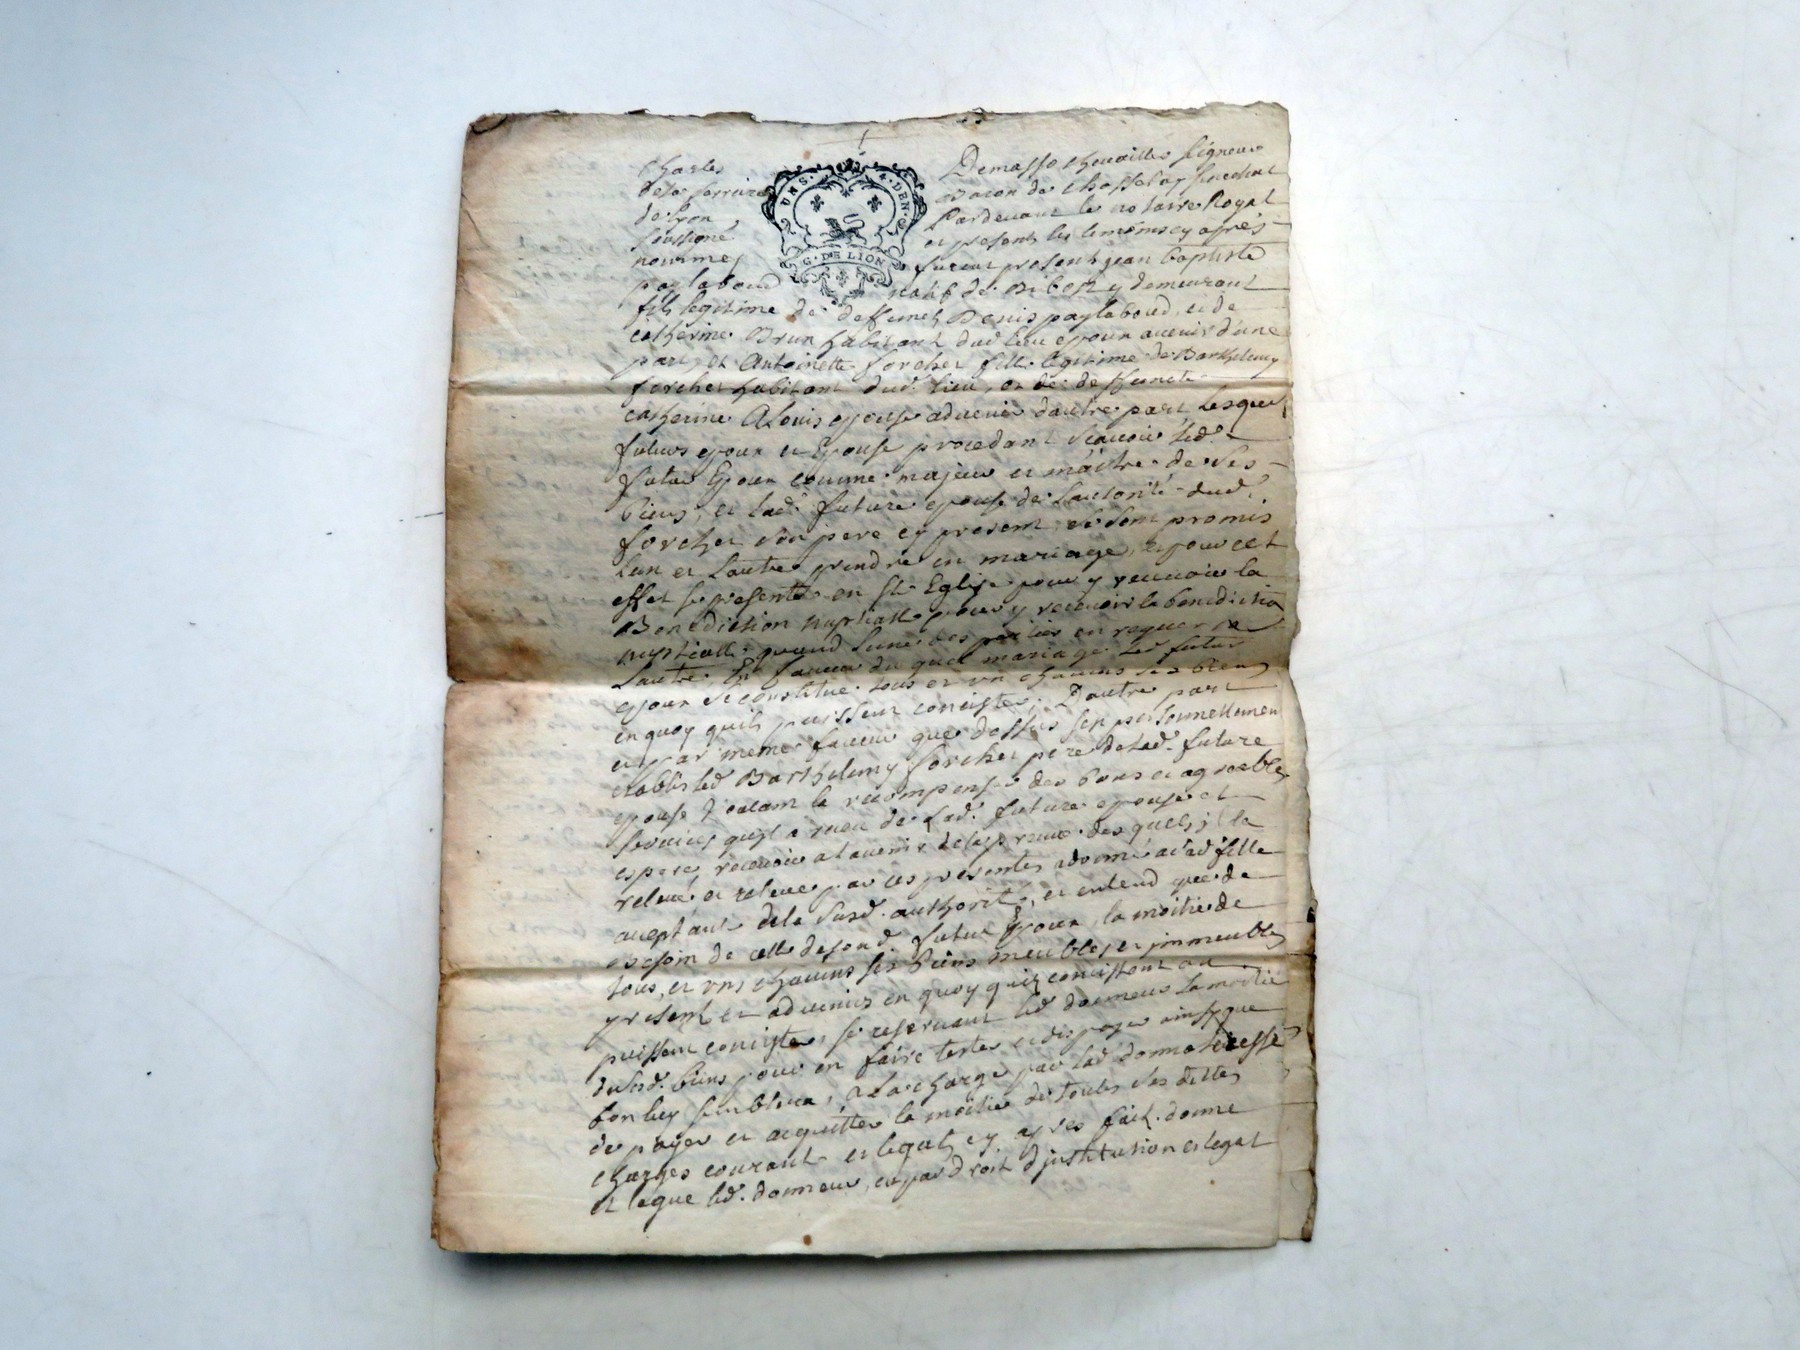 Charles Demasso chevailler seigneur
de la ferriere Baron de Chasselay senechal
de Lyon Pardevant le notaire Royal
soussigné et presents les temoins cy apres
UNS. 4. DEN.
G. DE LION
nommes furent presents jean baptiste
paylaboud natif de Bibost y demeurant
fils legitime de deffunct Denis paylaboud, et de
catherine Brun habitant dud. lieu epoux avenir d'une
part, et Antoinette forchet fille legitime de Barthelemy
forchet habitant dud. lieu, et de deffuncte
catherine epouse advenir dautre part, Lesquels
futurs epoux et Epouse procedant scavoir led.
futur Epoux comme majeur et maitre de ses
biens, et lad. future epouse de Lautorité dud.
forchet son pere cy present, se sont promis
Lun et Lautre prendre en mariage, et pour cet
effet se presenter en ste Eglise pour y recevoir la
Benediction nuptialle pour y recevoir la benediction
nuptialle quand lune des parties en requerra
Lautre, En faveur du quel mariage led futur
epoux se constitue tous et un chacuns ses biens
en quoy quils puissent concister, Dautre part
et par meme faveur que dessus sest personnellement
etablis led. Barthelemy forchet pere de lad. future
epouse la recompense des bons et agreables
services quil a receu de Lad. future epouse et
espere recevoir a lavenir de la preuve des quels il la
relevé et releve par ces presentes a donné a lad fille
aceptant de la susd. authorité, et entend que de
besoin de celle de sond. futur Epoux, la moitié de
tous, et uns chacuns ses biens meubles et jmmeubles
presents et advenirs en quoy quils concistent ou
puissent concister, se reservant led. donneur la moitié
du sesd. biens pour en faire tester et disposer ainsy que
bon luy semblera, a La charge par lad.
de payer et acquitter la moitié de toutes ses dettes
charges courant et legats cy apres fait. donne
et legue led. donneur, et par droit d'jnstitution et legat